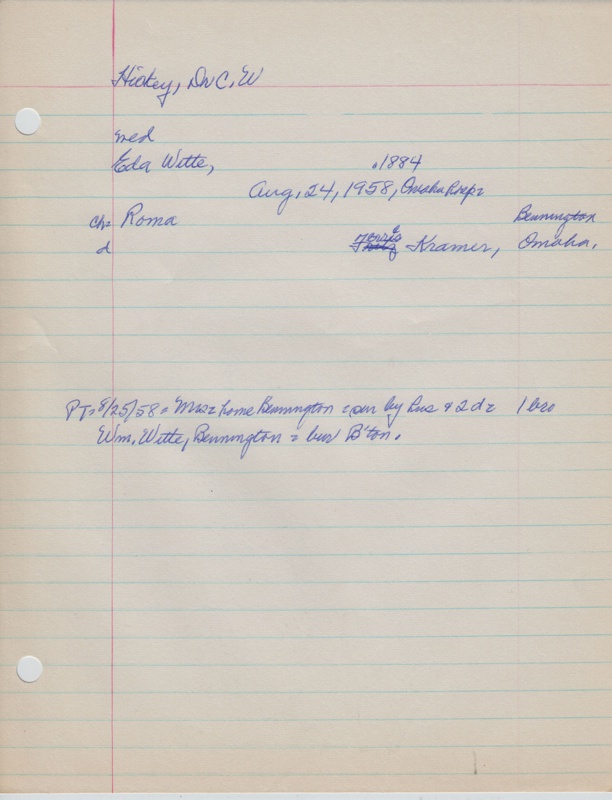 Hickey, Dr C. W
med
Eda Witte, b1884
Aug, 24, 1958, Omaha hosp=
ch= Roma Bennington
d Kramer, Omaha,
PT= 8/25/58= Mrs= home Bennington = sur by hus & 2 d= 1 bro
Wm. Witte, Bennington = bur B'ton.